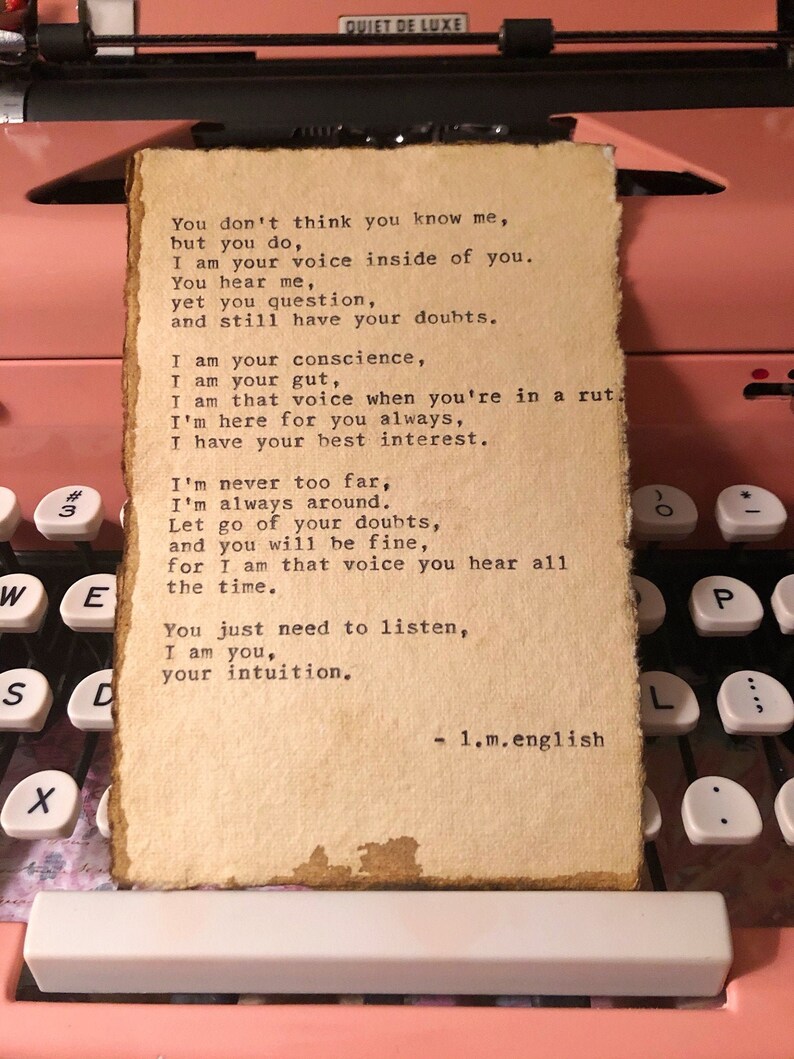 QUIET DE LUXE
You don't think you know me,
but you do,
I am your voice inside of you.
You hear me,
yet you question,
and still have your doubts.
I am your conscience,
I am your gut,
I am that voice when you're in a rut.
I'm here for you always,
I have your best interest.
I'm never too far,
I'm always around.
Let go of your doubts,
and you will be fine,
for I am that voice you hear all
the time.
You just need to listen,
I am you,
your intuition.
- l.m.english
# 3
) O
* -
W E
P
S D
L
: ;
X
. .